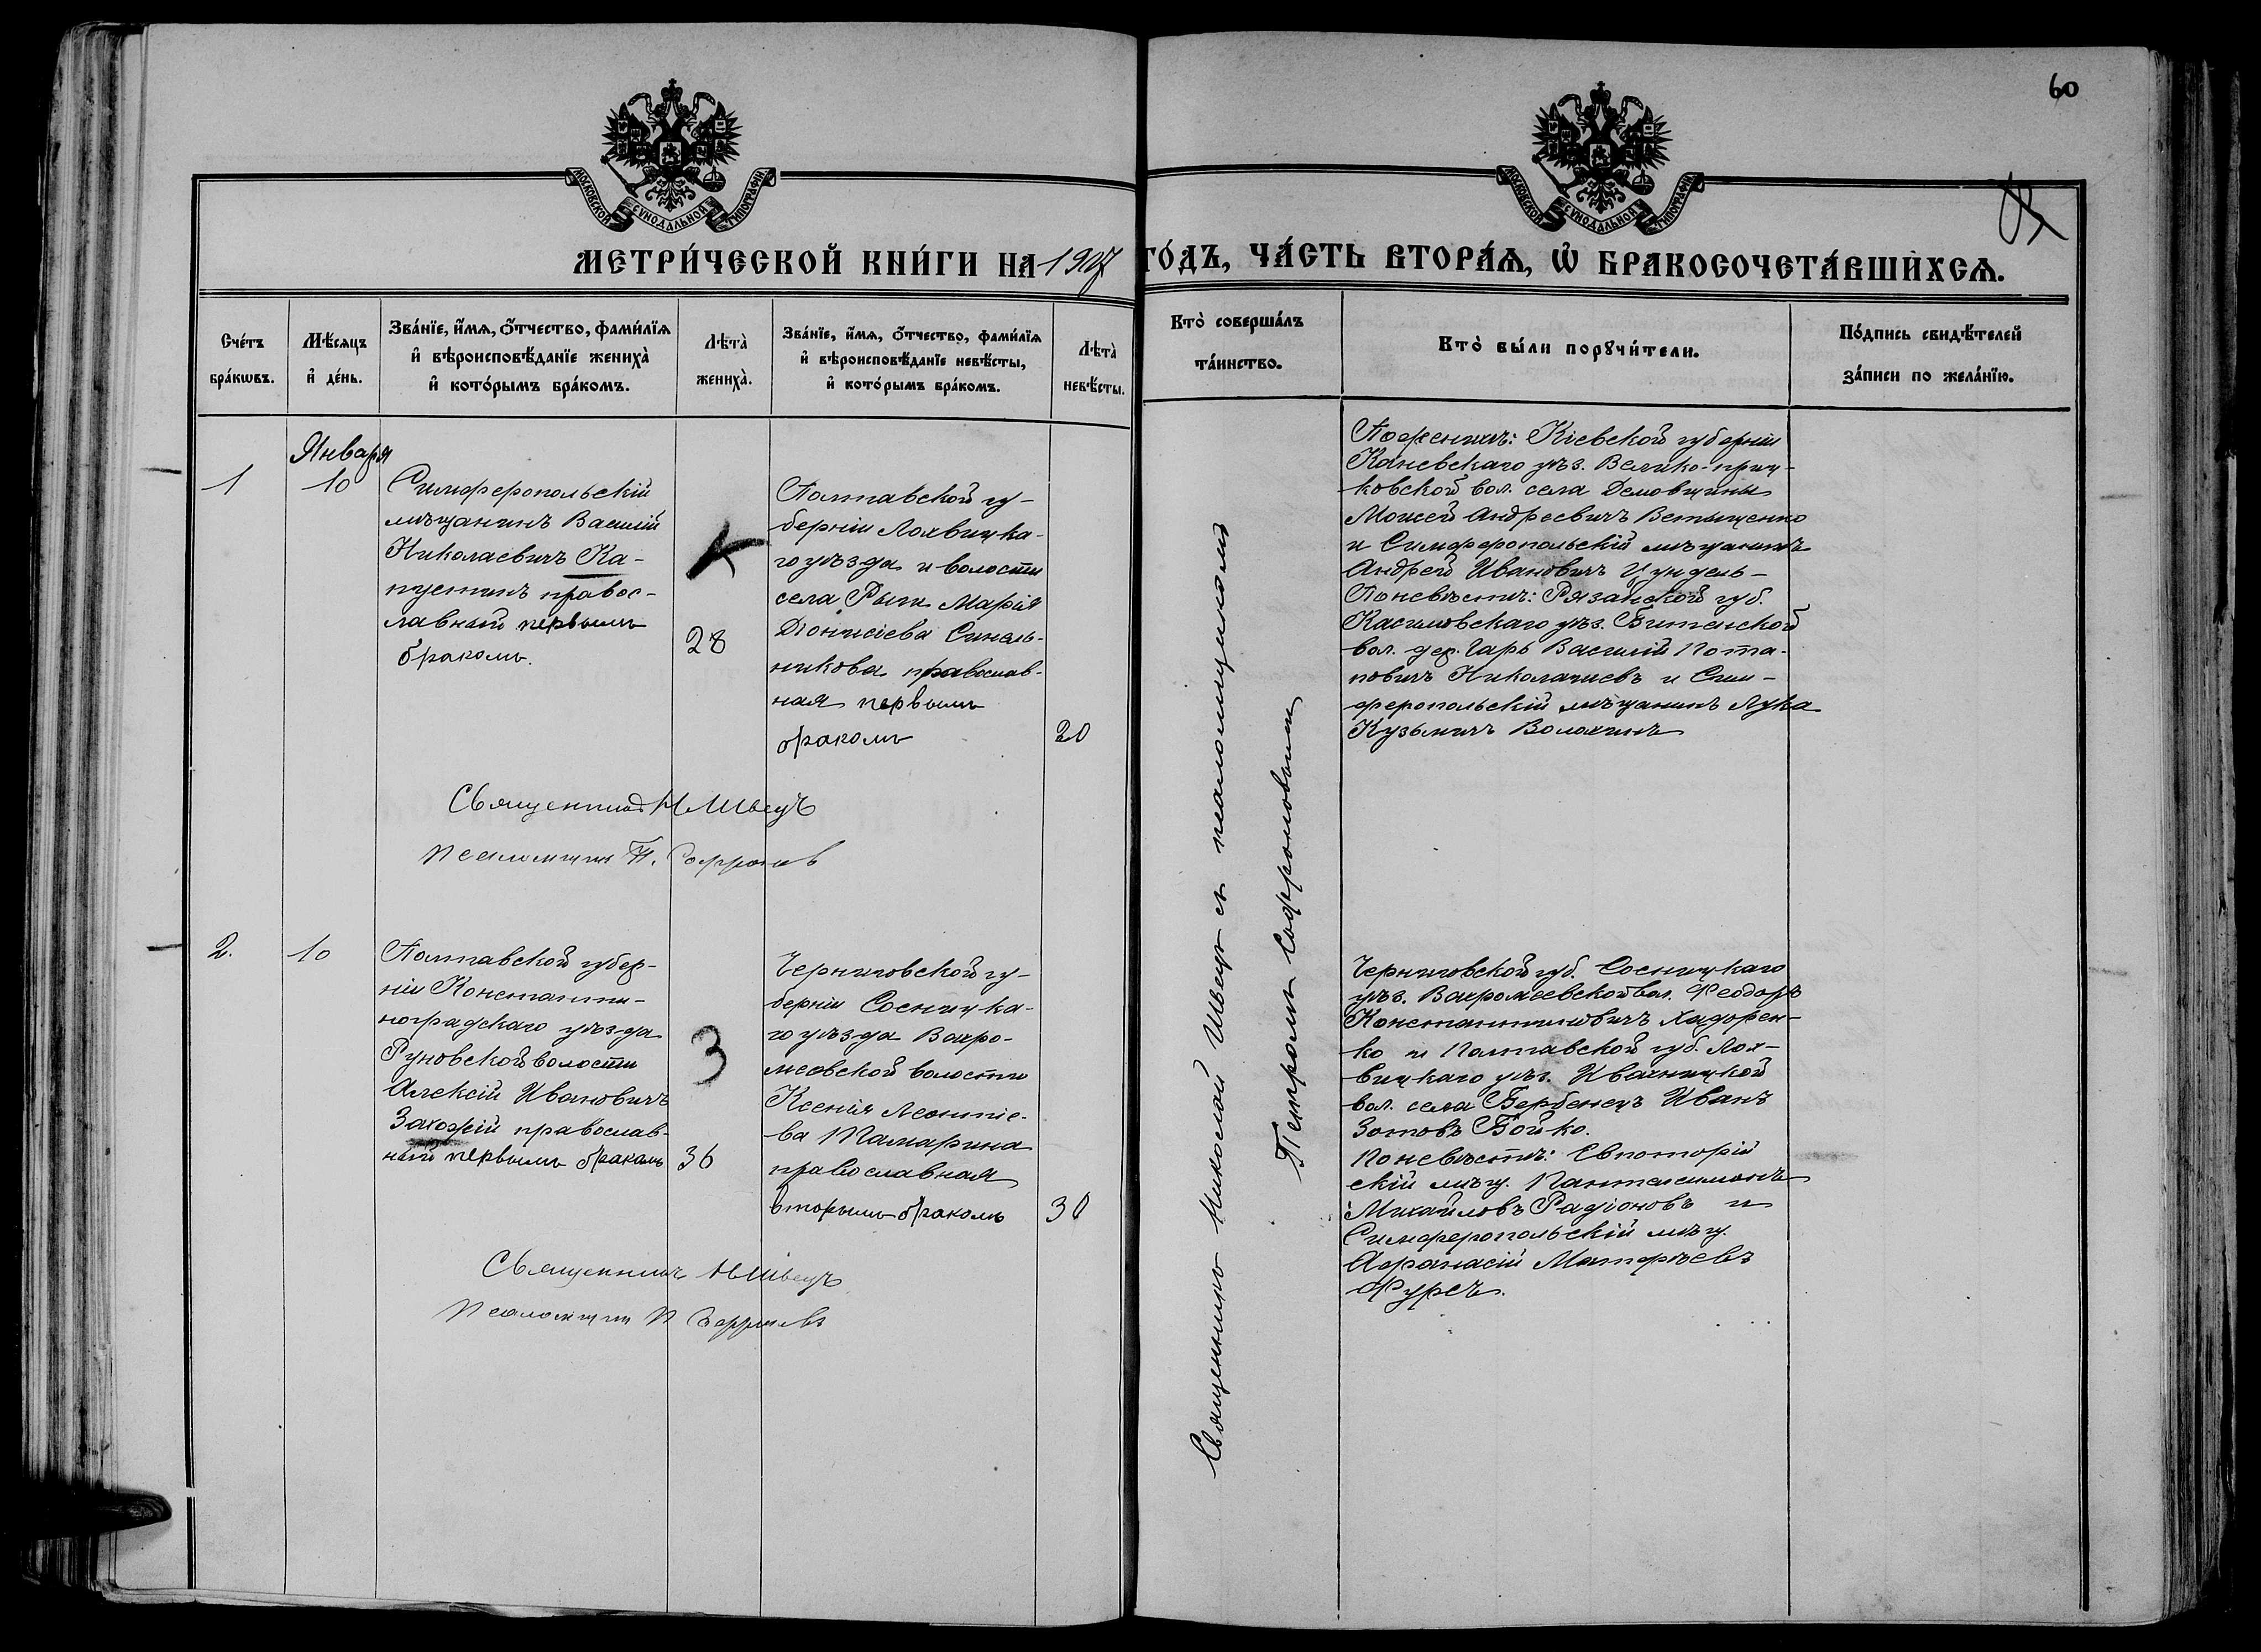 60
МОСКОВСКОЙ СѴНОДАЛЬНОЙ ТИПОГРАФІИ
МОСКОВСКОЙ СѴНОДАЛЬНОЙ ТИПОГРАФІИ
МЕТРИ́ЧЕСКОЙ КНИ́ГИ НА 1907 ГО́ДЪ, ЧА́СТЬ ВТОРА́Ѧ, Ѽ БРАКОСОЧЕТА́ВШИХСѦ.
Сче́тъ
бра́кωвъ.
Мѣ́сяцъ
и҆ де́нь.
Зва́нїе, и҆́мѧ, ѻ҆́тчество, фами́лїѧ
и҆ вѣроисповѣ́данїе жениха̀
и҆ кото́рымъ бра́комъ.
Лѣта̀
жениха̀.
Зва́нїе, и҆́мѧ, ѻ҆́тчество, фами́лїѧ
и҆ вѣроисповѣ́данїе невѣ́сты,
и҆ кото́рымъ бра́комъ.
Лѣта̀
невѣ́сты.
Кто̀ соверша́лъ
та́инство.
Кто̀ бы́ли порꙋчи́тели.
По́дпись свидѣ́телей
за́писи по жела́нїю.
Января
1
10
Симферопольскій
мѣщанинъ Василій
Николаевичъ Ка-
пустинъ правос-
лавный первымъ
бракомъ.
28
Полтавской гу-
берніи Лохвицка-
го уѣзда и волости
села Рыги Марія
Діонисіева Синель-
никова православ-
ная первымъ
бракомъ
20
Священникъ Н Швецъ
Псаломщикъ П. Софроновъ
Священникъ Николай Швецъ съ псаломщикомъ
Петромъ Софроновымъ
По женихѣ: Кіевской губерніи
Каневскаго уѣз. Велико-приц-
ковской вол. села Демовщины
Моисей Андреевичъ
и Симферопольскій мѣщанинъ
Андрей Ивановичъ Цундель-
По невѣстѣ: Рязанской губ.
Касимовскаго уѣз. вол. дер.
Василій Пота-
повичъ и Сим-
феропольскій мѣщанинъ Лука
Кузьмичъ Волохинъ
2.
10
Полтавской губер-
ніи Константи-
ноградскаго уѣзда
Руновской волости
Алексій Ивановичъ
Захожій православ-
ный первымъ бракомъ
3
36
Черниговской гу-
берніи Сосницка-
го уѣзда Вахро-
меевской волости
Ксенія Леонтіе-
ва Тамарина
православная
вторымъ бракомъ
30
Священникъ Н Швецъ
Псаломщикъ П Софроновъ
Черниговской губ. Сосницкаго
уѣз. Вахромеевской вол. Феодоръ
Константиновичъ Хадорен-
ко и Полтавской губ. Лох-
вицкаго уѣз. Ивахницкой
вол. села Бербеницъ Иванъ
Зотовъ Бойко.
По невѣстѣ: Евпаторій
скій мѣщ. Пантелеимонъ
Михайловъ Радіоновъ и
Симферопольскій мѣщ.
Афанасій Матфѣевъ
Фурсъ.